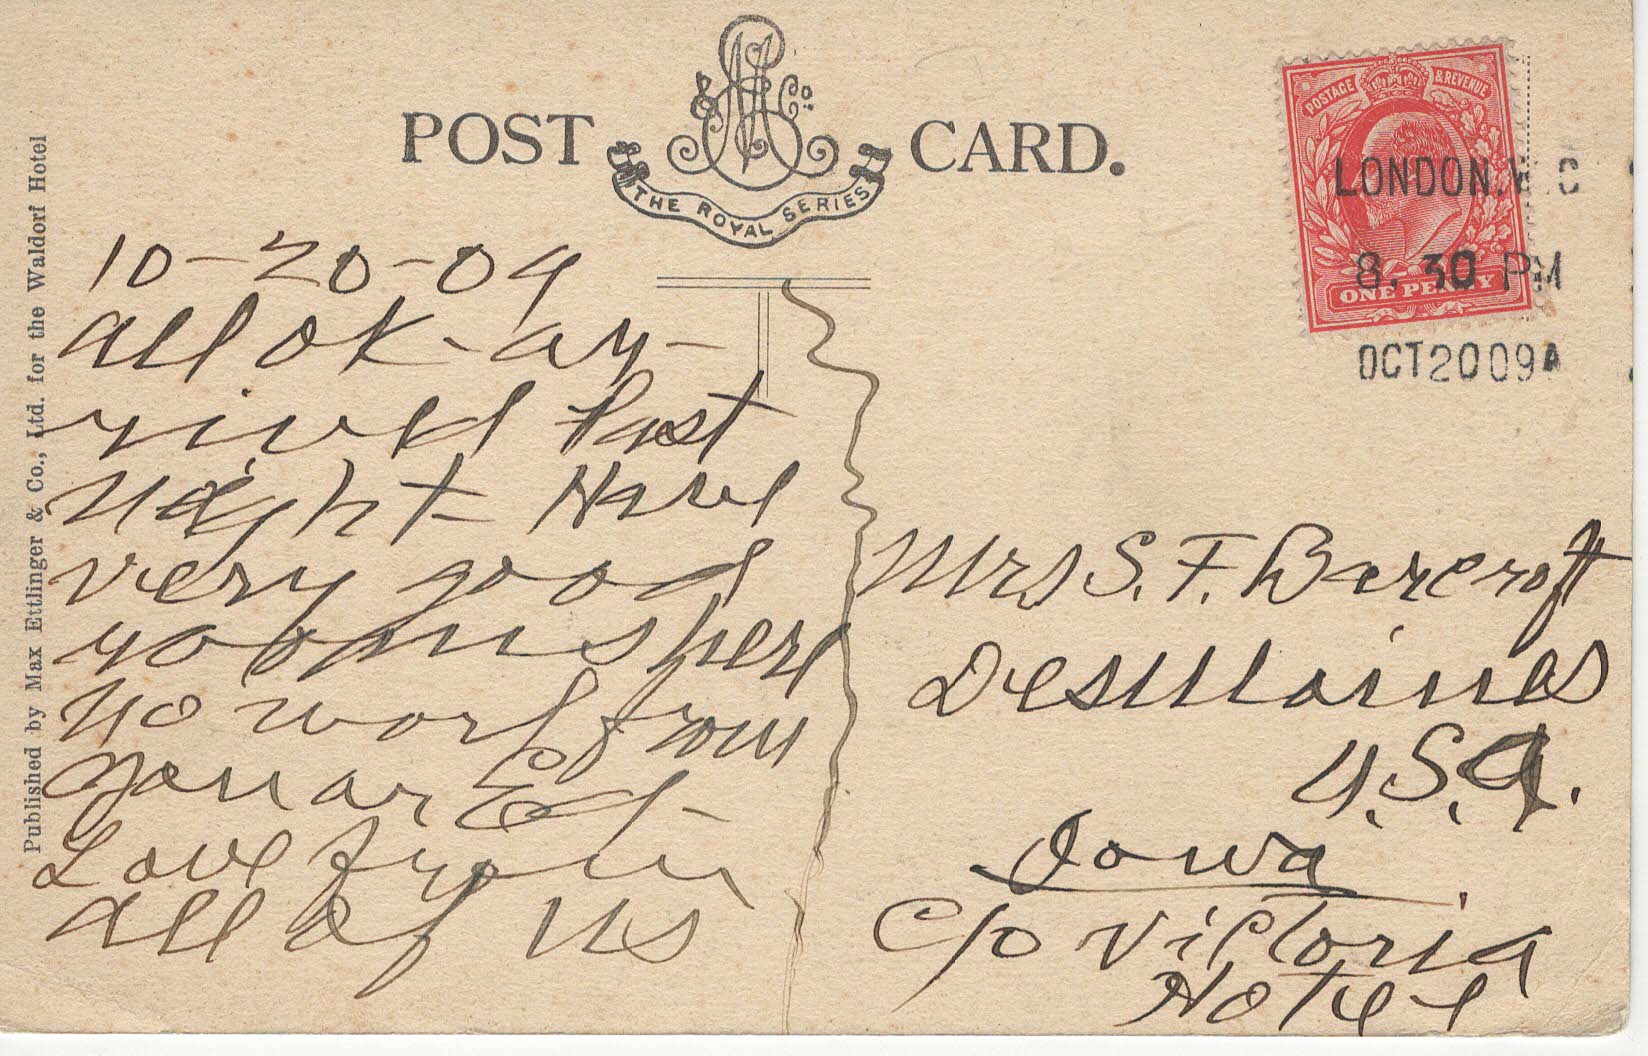 POST CARD.
& Co.
THE ROYAL SERIES
POSTAGE & REVENUE
ONE PENNY
LONDON. W C
8. 30 PM
OCT 20 09A
Published by Max Ettlinger & Co., Ltd. for the Waldorf Hotel
10-20-09
All OK - ar-
rived last
night Have
very good
rooms here
no word from
you or Ed -
Love from
all of us
Mrs S. F. Barcroft
DesMoines
U.S.A.
Iowa
c/o Victoria
Hotel